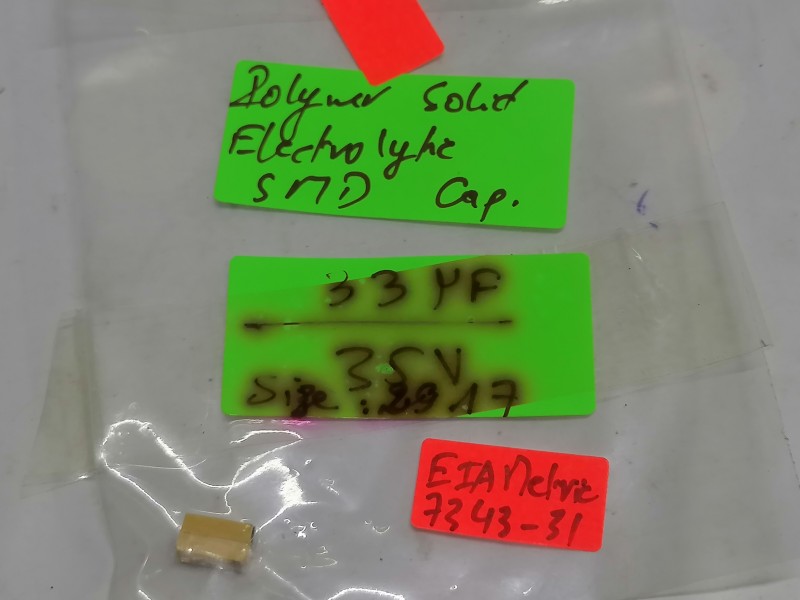 Polymer Solid
Electrolytic
SMD Cap.
33 µF
35V
Size : 2917
EIA Metric
7343-31